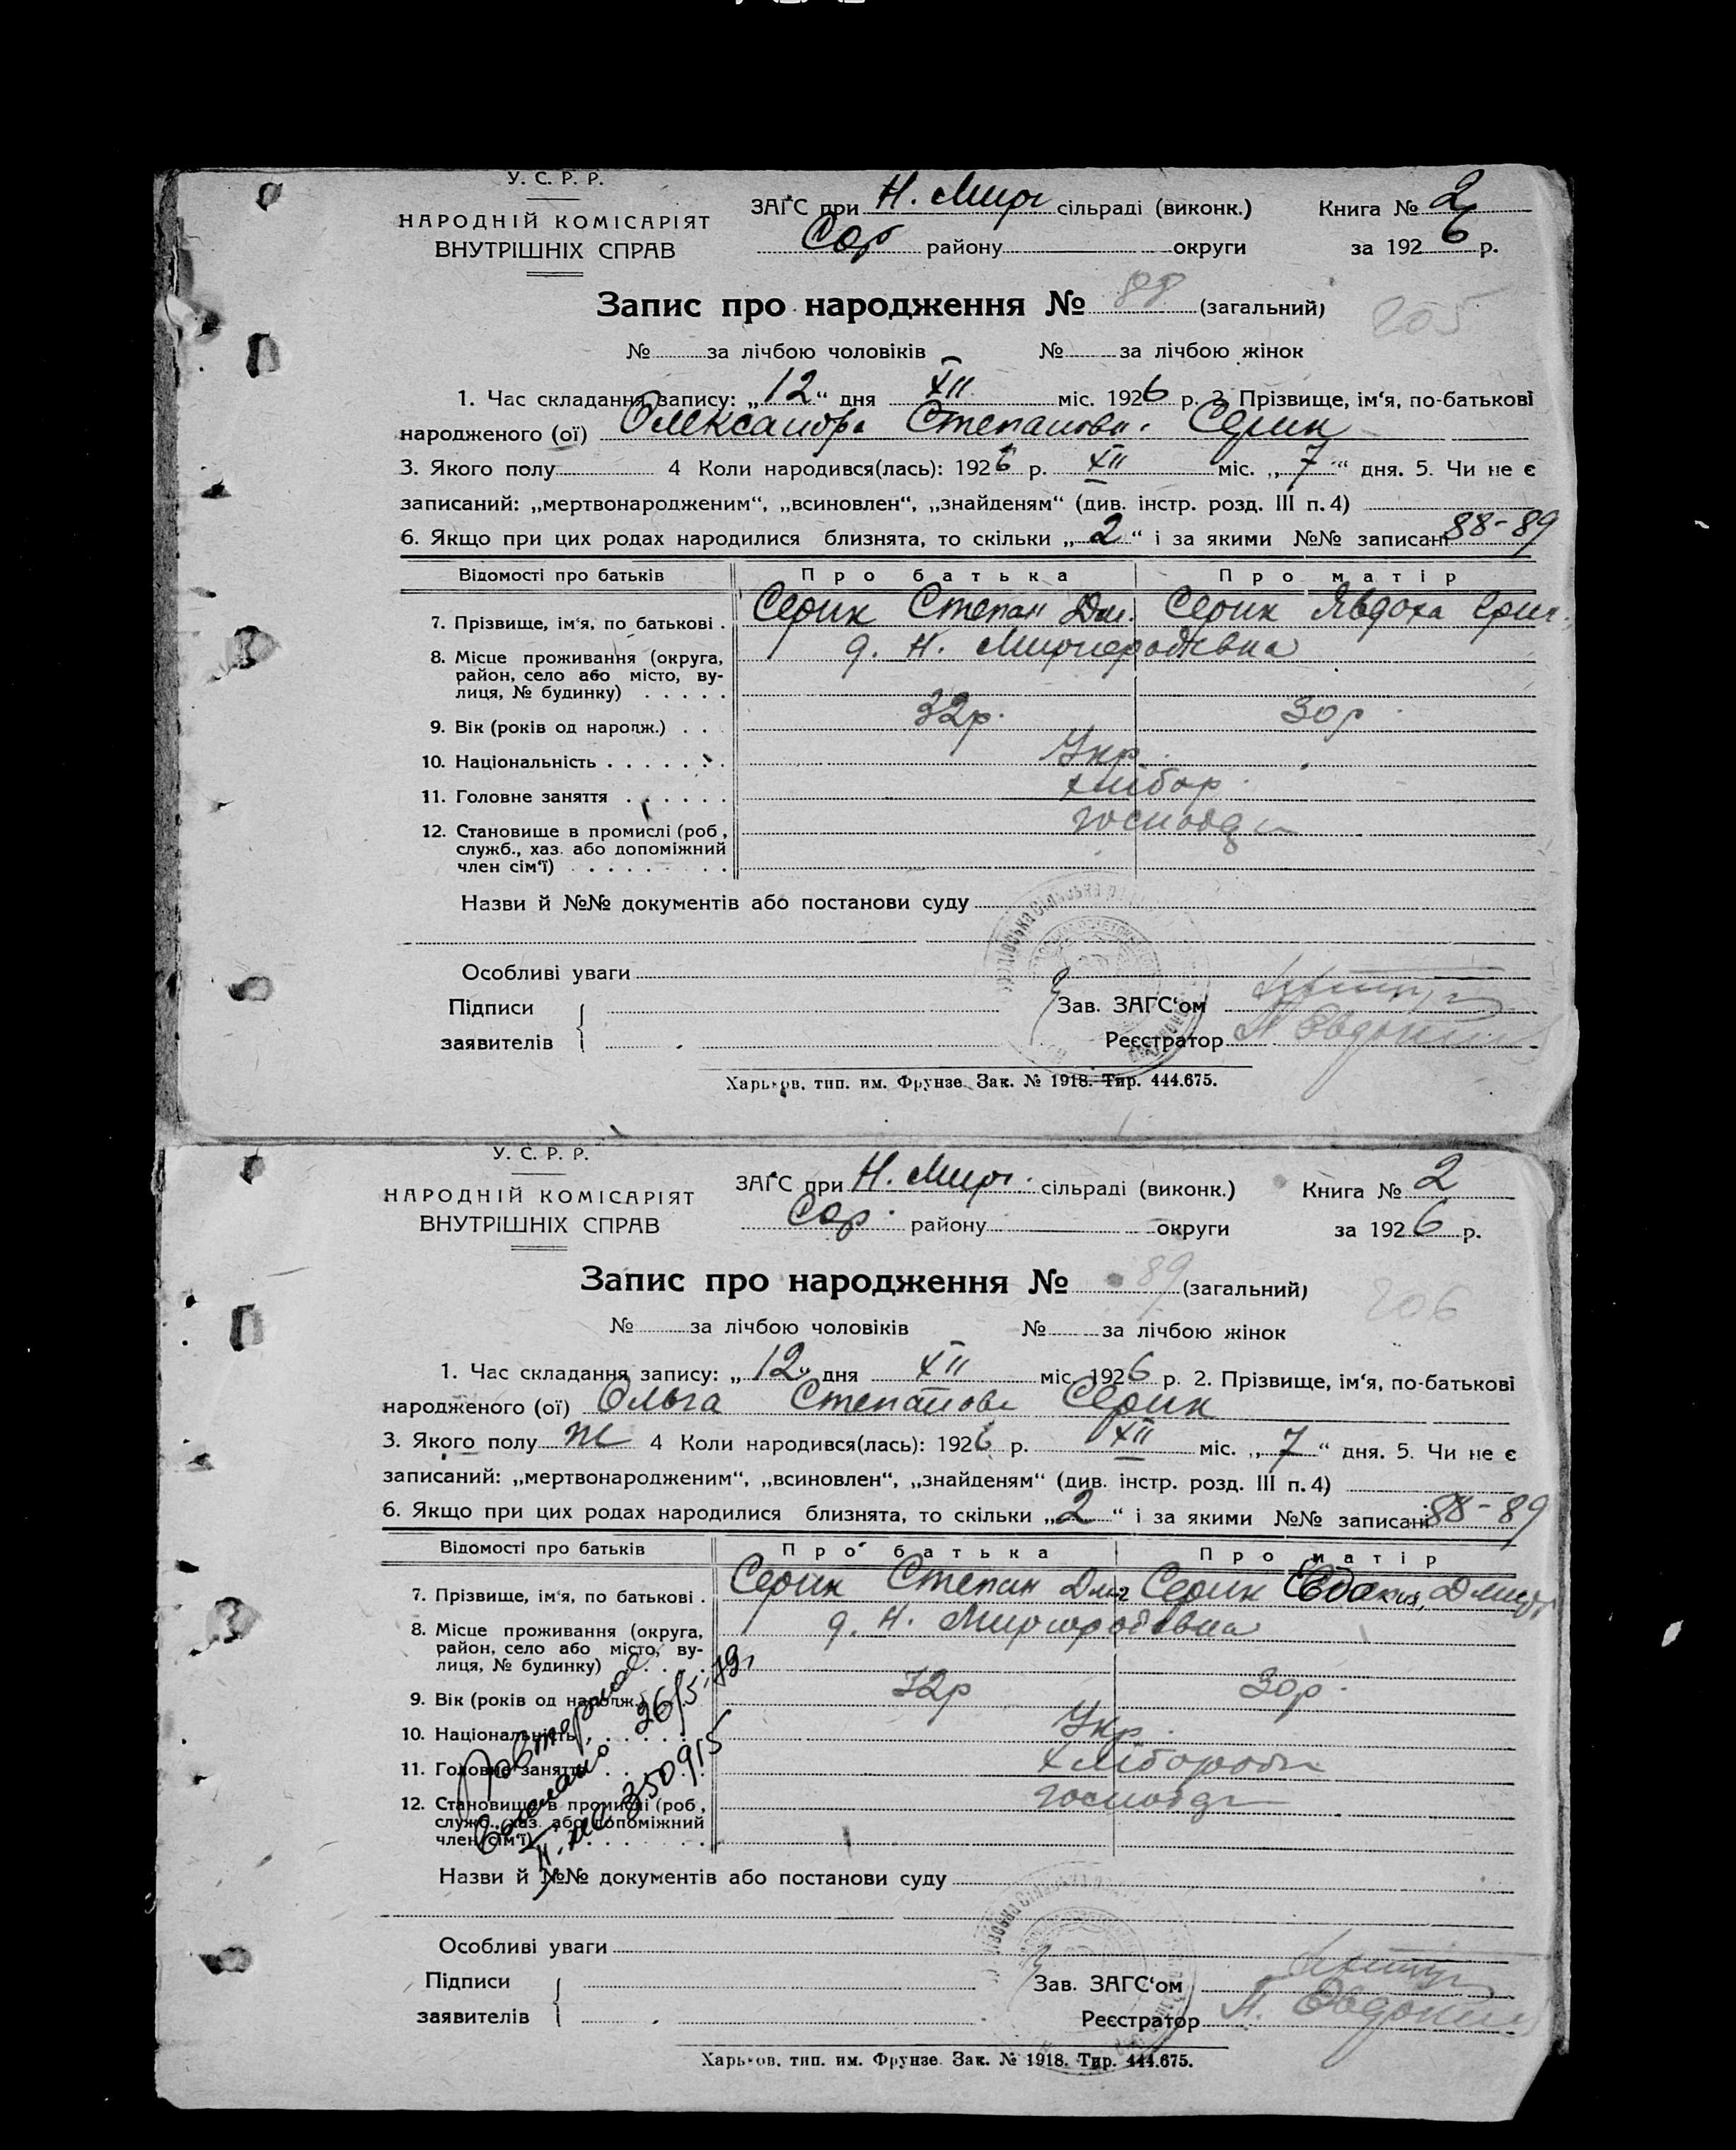 У. С. Р. Р.
НАРОДНІЙ КОМІСАРІЯТ
ВНУТРІШНІХ СПРАВ
ЗАГС при Н. Мирг сільраді (виконк.) Книга № 2
Сор району округи за 1926 р.
Запис про народження № 88 (загальний) 205
№ за лічбою чоловіків № за лічбою жінок
1. Час складання запису: „12“ дня XII міс. 1926 р. 2. Прізвище, ім‘я, по-батькові
народженого (ої) Олександра Степанова. Серик
3. Якого полу 4 Коли народився(лась): 1926 р. XII міс. „7“ дня. 5. Чи не є
записаний: „мертвонародженим“, „всиновлен“, „знайденям“ (див. інстр. розд. III п. 4)
6. Якщо при цих родах народилися близнята, то скільки „2“ і за якими №№ записані 88-89
Відомості про батьків Про батька Про матір
7. Прізвище, ім‘я, по батькові . Серик Степан Дм. Серик Явдоха Григ.
8. Місце проживання (округа, район, село або місто, вулиця, № будинку) . . . . . Н. Миргородівка
9. Вік (років од народж.) . . . 32р. 30р
10. Національність . . . . . . . Укр.
11. Головне заняття . . . . . . хлібор.
12. Становище в промислі (роб., служб., хаз. або допоміжний член сім‘ї) . . . . . . . .
Назви й №№ документів або постанови суду
Особливі уваги
Підписи
заявителів
Зав. ЗАГС‘ом
Реєстратор
Харьков, тип. им. Фрунзе. Зак. № 1918. Тир. 444.675.
У. С. Р. Р.
НАРОДНІЙ КОМІСАРІЯТ
ВНУТРІШНІХ СПРАВ
ЗАГС при Н. Мирг. сільраді (виконк.) Книга № 2
Сор. району округи за 1926 р.
Запис про народження № 89 (загальний) 206
№ за лічбою чоловіків № за лічбою жінок
1. Час складання запису: „12“ дня XII міс. 1926 р. 2. Прізвище, ім‘я, по-батькові
народженого (ої) Ольга Степанова Серик
3. Якого полу ж 4 Коли народився(лась): 1926 р. XII міс. „7“ дня. 5. Чи не є
записаний: „мертвонародженим“, „всиновлен“, „знайденям“ (див. інстр. розд. III п. 4)
6. Якщо при цих родах народилися близнята, то скільки „2“ і за якими №№ записані 88-89
Відомості про батьків Про батька Про матір
7. Прізвище, ім‘я, по батькові . Серик Степан Дм. Серик
8. Місце проживання (округа, район, село або місто, вулиця, № будинку) . . . . . Н. Миргородівка
9. Вік (років од народж.) . . . 32р 30р.
10. Національність . . . . . . . Укр.
11. Головне заняття . . . . . . хлібороби
12. Становище в промислі (роб., служб., хаз. або допоміжний член сім‘ї) . . . . . . . .
Назви й №№ документів або постанови суду
Особливі уваги
Підписи
заявителів
Зав. ЗАГС‘ом
Реєстратор
Харьков, тип. им. Фрунзе. Зак. № 1918. Тир. 444.675.